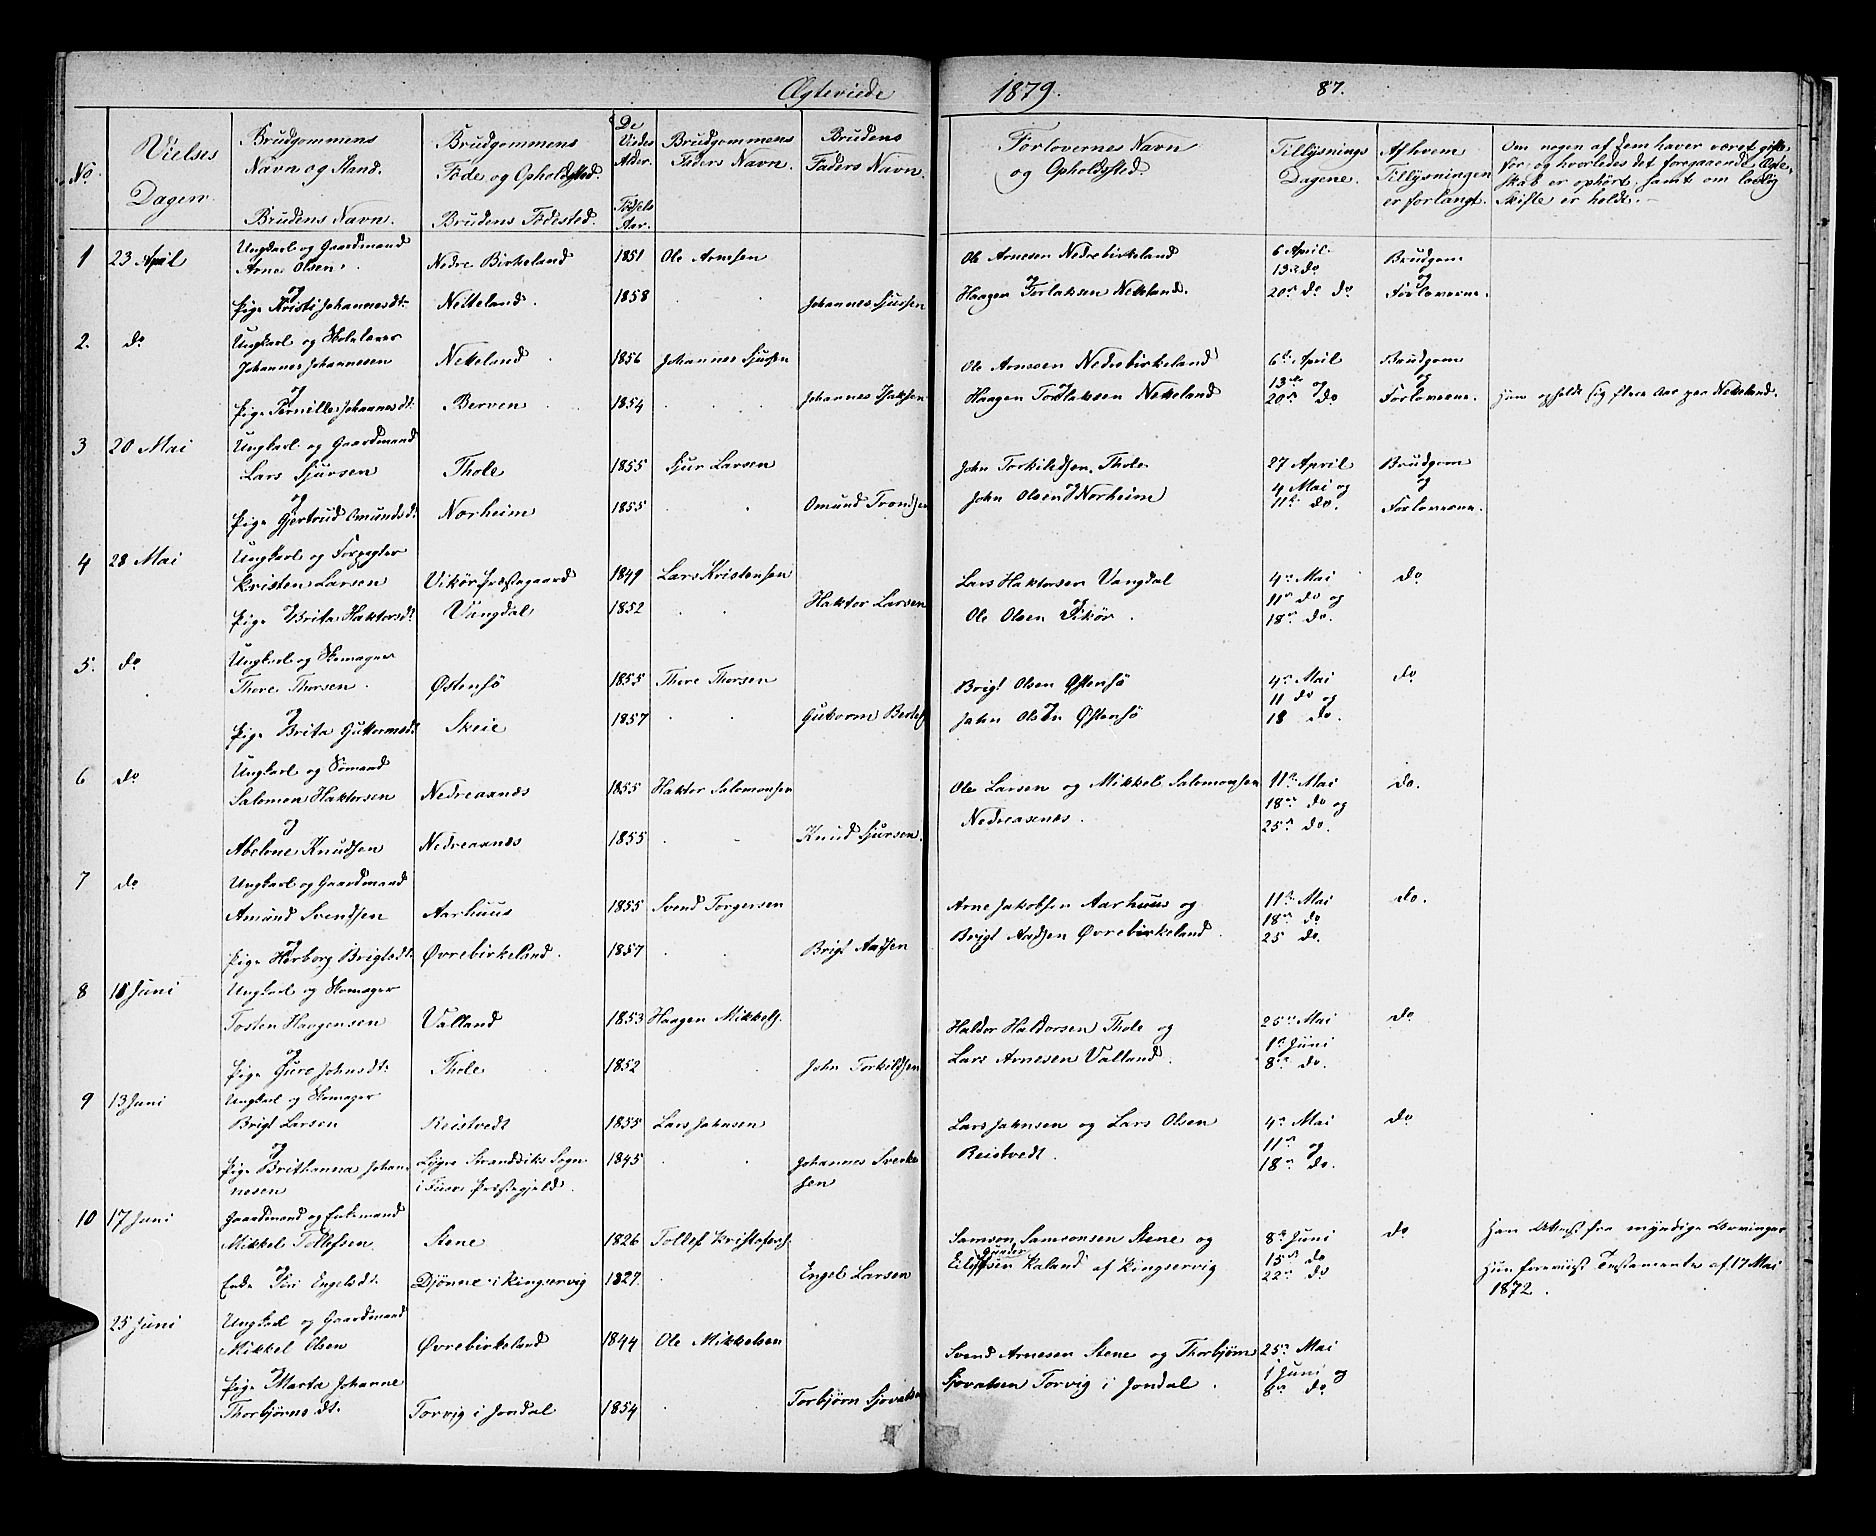 Ægteviede 1879. 87.
No.
Vielses Dagen.
Brudgommens Navn og Stand.
Brudens Navn.
Brudgommens Føde og Opholdsted.
Brudens Fødested.
De Viedes Alder.
Fødsels Aar.
Brudgommens Faders Navn.
Brudens Faders Navn.
Forlovernes Navn og Opholdsted.
Tillysnings Dagene.
Af hvem Tillysningen er forlangt.
Om nogen af dem haver været gifte
før, og hvorledes det foregaaende Ægte-
skab er ophört, samt om lovlig
Skifte er holdt.
1 23 April Ungkarl og Gaardmand
Arne Olsen Nedre Birkeland 1851 Ole Arnesen Ole Arnesen Nedrebirkeland 6 April Brudgom
og og 13de do og
Pige Kristi Johannesdt: Netteland. 1858 Johannes Sjursen Haagen Torlaksen Netteland. 20de do do Forloverne.
2. do Ungkarl og Skolelærer
Johannes Johannesen Netteland 1856 Johannes Sjursen Ole Arnesen Nedrebirkeland 6te April Brudgom
og og 13de og og
Pige Pernille Johannesdt: Berven 1854 Johannes Isaksen Haagen Torlaksen Netteland 20de do Forloverne. Hun opholdt sig flere Aar paa Netteland.
3 20 Mai Ungkarl og Gaardmand
Lars Sjursen Thole 1855 Sjur Larsen John Torkildsen Thole 27 April Brudgom
og og 4 Mai og og
Pige Gjertrud Omundsd: Norheim 1855 Omund Trondsen John Olsen Norheim 11te do. Forloverne.
4 28 Mai Ungkarl og Forpagter
Kristen Larsen Vikør Præstegaard 1849 Lars Kristensen Lars Haktorsen Vangdal 4de Mai do
og 11te do og
Pige Brita Haktorsdt Vangdal 1852 Haktor Larsen Ole Olsen Vikør. 18de do.
5. do Ungkarl og Skomager
Thore Thorsen. Østensø 1855 Thore Thorsen Brigt Olsen Østensø 4de Mai do
og og 11 do og
Pige Brita Guttormsdt Skeie 1857 Guttorm Bertels John Olsen Østensø 18 do.
6 do Ungkarl og Sømand
Salomon Haktorsen Nedreaanæs 1855 Haktor Salomonsen Ole Larsen og Mikkel Salomonsen 11te Mai do.
og Nedreaanæs. 18de do og
Abelone Knudsen Nedreaanæs 1855 Knud Sjursen. 25de do.
7 do Ungkarl og Gaardmand
Amund Svendsen Aarhuus 1855 Svend Torgersen Arne Jakobsen Aarhuus og 11te Mai do.
og 18de do
Pige Herborg Brigtsdt: Øvrebirkeland. 1857 Brigt Aadsen Brigt Aadsen Øvrebirkeland. 25 do.
8 10 Juni Ungkarl og Skomager
Tosten Haagensen Valland 1853 Haagen Mikkels. Haldor Haldorsen Thole og 25de Mai do
og 1te Juni
Pige Guro Johnsdt: Thole 1852 John Torkildsen Lars Arnesen Valland. 8de do.
9 13 Juni Ungkarl og Skomager
Brigt Larsen Reistvedt 1855 Lars Johnsen Lars Johnsen og Lars Olsen 4de Mai do
og Reistvedt. 11te og
Pige Brithanna Johan- Ljgre Strandviks Sogn 1845 Johannes Sverke 18de do.
nesen i Fuse Præstegjeld. sen
10 17 Juni Gaardmand og Enkemand
Mikkel Tollefsen Stene 1826 Tollef Kristofers. Samson Samsonsen Stene og 8de Juni do Han attest fra myndige Arvinger
og 15de do
Enke Siri Engelsdt: Djønne i Kingservig 1827 Engel Larsen Kaland af Kingservig 22de do Hun foreviist Testamente af 17 Mai
1872.
25 Juni Ungkarl og Gaardmand
Mikkel Olsen Øvrebirkeland 1844 Ole Mikkelsen Svend Arnesen Stene og Thorbjørn 25de Mai
og 1 Juni og
Pige Marta Johanne Sjovatsen Torvig i Jondal. 8de do
Thorbjørnsdt: Torvig i Jondal 1854 Torbjörn Sjovatsen